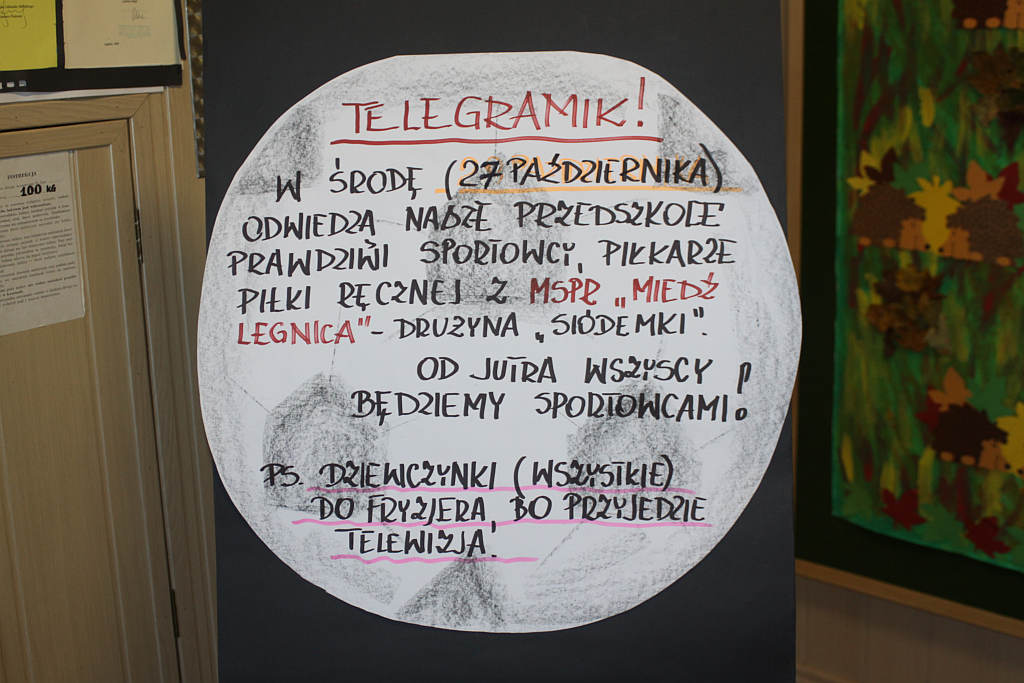 INSTRUKCJA
100 KG
TELEGRAMIK!
W ŚRODĘ (27 PAŹDZIERNIKA)
ODWIEDZĄ NASZE PRZEDSZKOLE
PRAWDZIWI SPORTOWCY, PIŁKARZE
PIŁKI RĘCZNEJ Z MSPR „MIEDŹ
LEGNICA" - DRUŻYNA „SIÓDEMKI".
OD JUTRA WSZYSCY
BĘDZIEMY SPORTOWCAMI!
PS. DZIEWCZYNKI (WSZYSTKIE)
DO FRYZJERA, BO PRZYJEDZIE
TELEWIZJA.